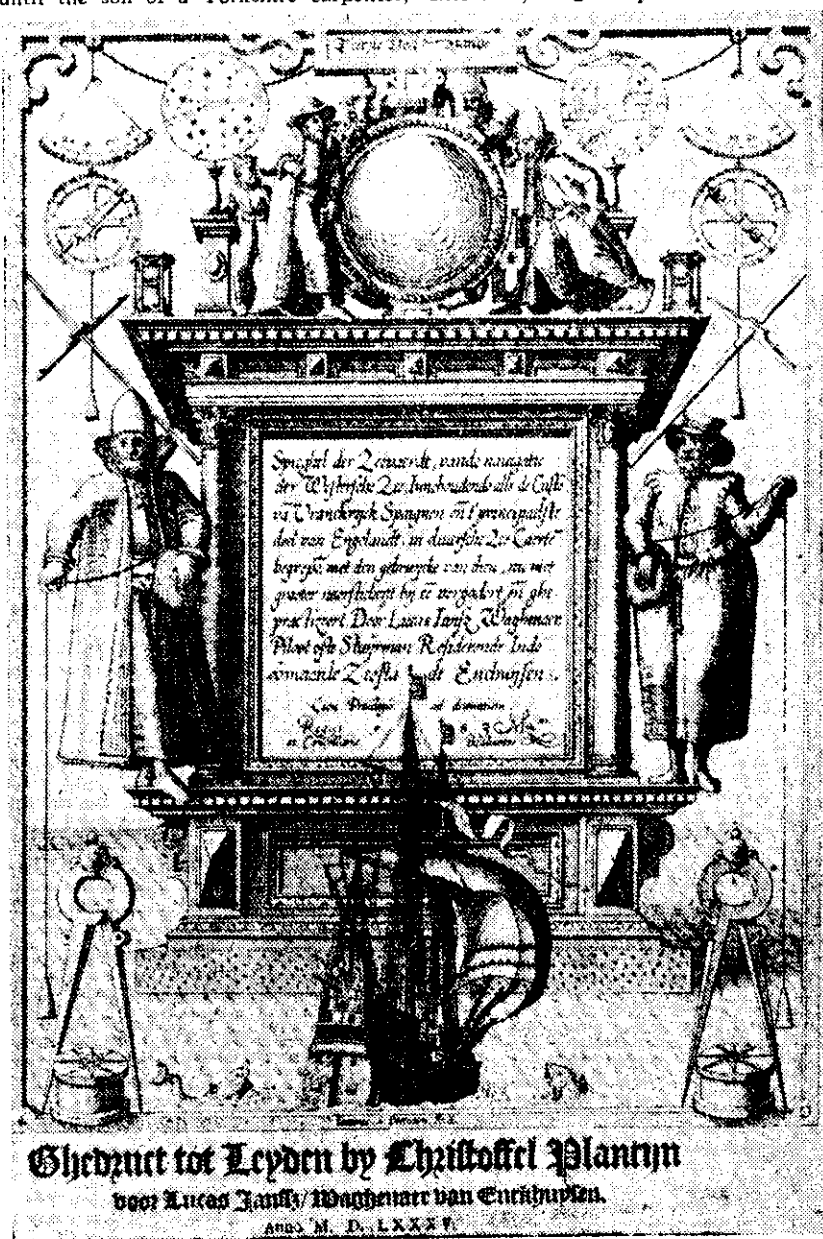 until the son of a Yorkshire carpenter,
Spieghel der Zeevaerdt, vande navigatie
der Westersche Zee, Innehoudende alle de Custē
vā Vranckryck Spaignen eñ t'principaelste
deel van Engelandt, in diversche Zee Caertē
begrepē, met den gebruycke van dien, nu met
grooter naersticheyt bij eē vergadert eñ ghe
practizeert Door Lucas Iansz Waghenaer
Piloot ofte Stuyrman Residerende Inde
vermaerde Zeestadt Enchuysen.
Cum Privilegio ad
Ghedruct tot Leyden by Christoffel Plantijn
voor Lucas Janssz/ Waghenaer van Enckhuysen.
Anno M. D. LXXXV.